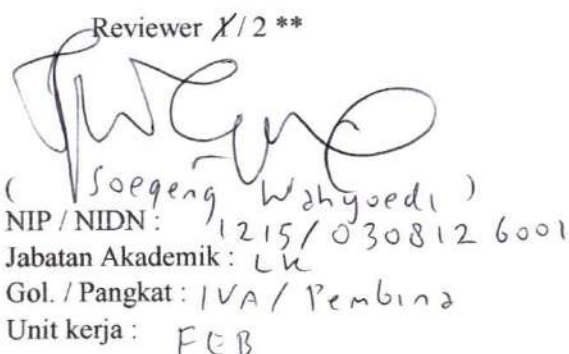 Reviewer 1/ 2 **
( Soegeng Wahyoedi )
NIP / NIDN : 1215/030812 6001
Jabatan Akademik : LK
Gol. / Pangkat : IVA / Pembina
Unit kerja : FEB